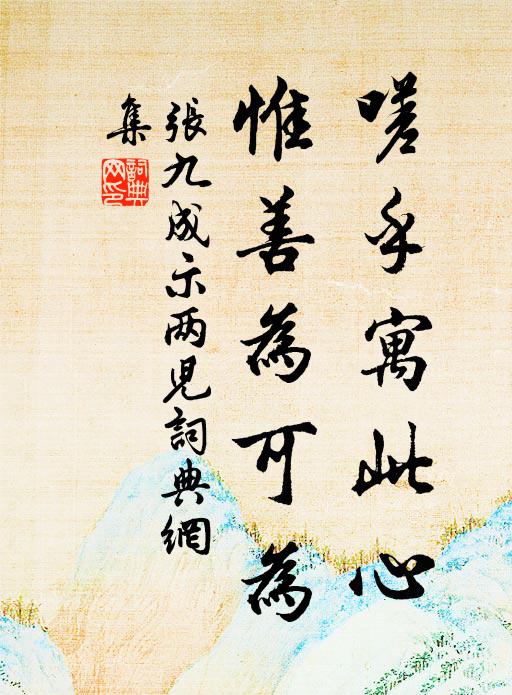 嗟乎寓此心
惟善為可為
張九成示两兒詞典網
集
詞典网印